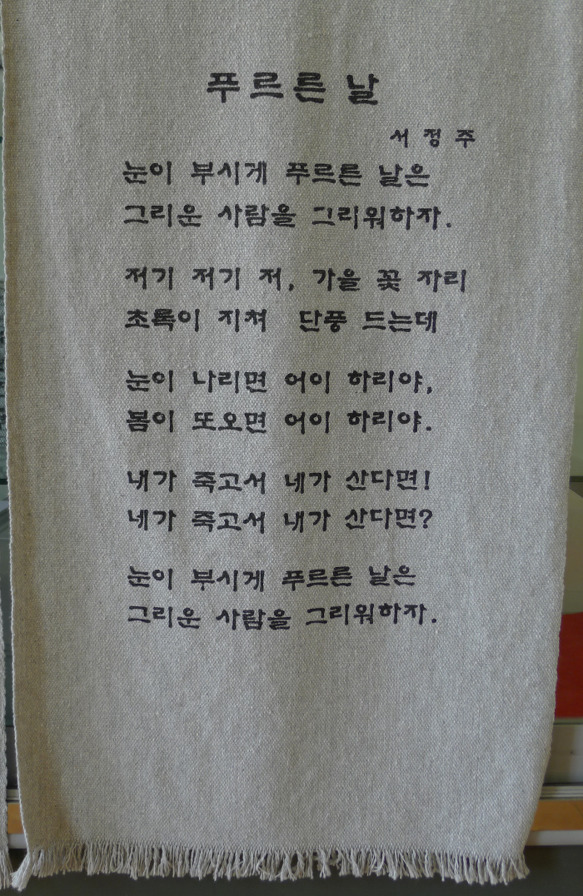 푸르른 날
서정주
눈이 부시게 푸르른 날은
그리운 사람을 그리워하자.
저기 저기 저, 가을 꽃 자리
초록이 지쳐 단풍 드는데
눈이 나리면 어이 하리야,
봄이 또오면 어이 하리야.
내가 죽고서 네가 산다면!
네가 죽고서 내가 산다면?
눈이 부시게 푸르른 날은
그리운 사람을 그리워하자.